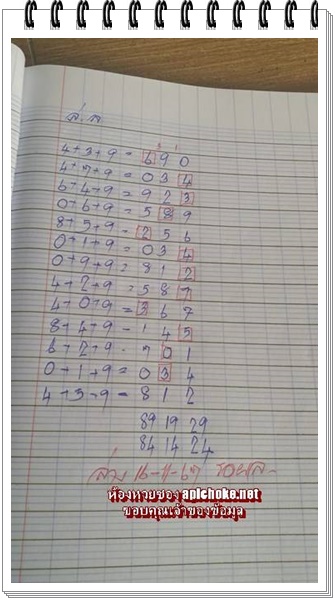 ล่.ล
4+3+9= 690
4+7+9= 034
6+4+9= 923
0+6+9= 589
8+5+9= 256
0+1+9= 034
0+9+9= 812
4+2+9= 587
4+0+9= 367
8+4+9- 145
6+2+9- 701
0+1+9= 034
4+3-9= 812
89 19 29
84 14 24
ล่าง 16-11-67 รอผล-
ห้องหวยซอง apichoke.net
ขอบคุณเจ้าของข้อมูล